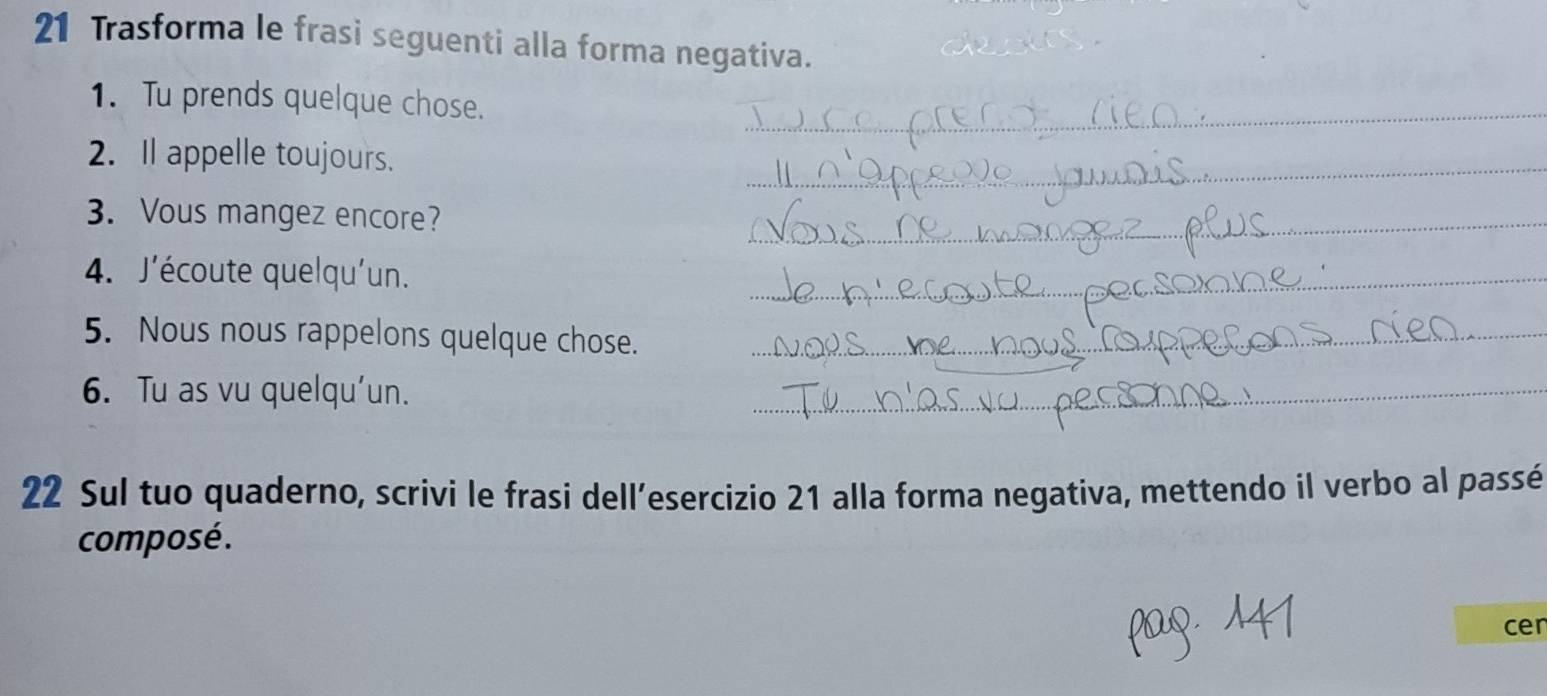 21 Trasforma le frasi seguenti alla forma negativa.
1. Tu prends quelque chose. Tu ne prends rien.
2. Il appelle toujours. Il n'appelle jamais.
3. Vous mangez encore? Vous ne mangez plus
4. J'écoute quelqu'un. Je n'ecoute personne.
5. Nous nous rappelons quelque chose. Nous ne nous rappelons rien.
6. Tu as vu quelqu'un. Tu n'as vu personne.
22 Sul tuo quaderno, scrivi le frasi dell'esercizio 21 alla forma negativa, mettendo il verbo al passé
composé.
pag. 141
cen